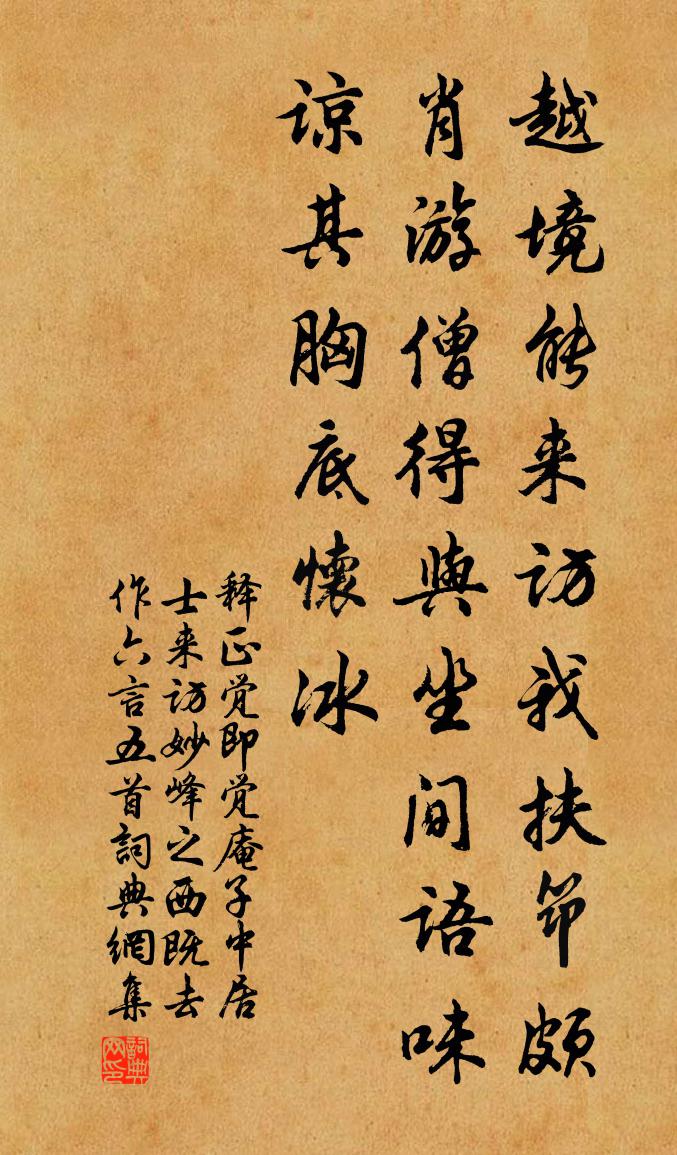 越境能来访我扶筇颇
肖游僧得與坐间语味
谅其胸底懷冰
释正觉即觉庵子中居
士来访妙峰之西既去
作六言五首詞典網集
詞典网印